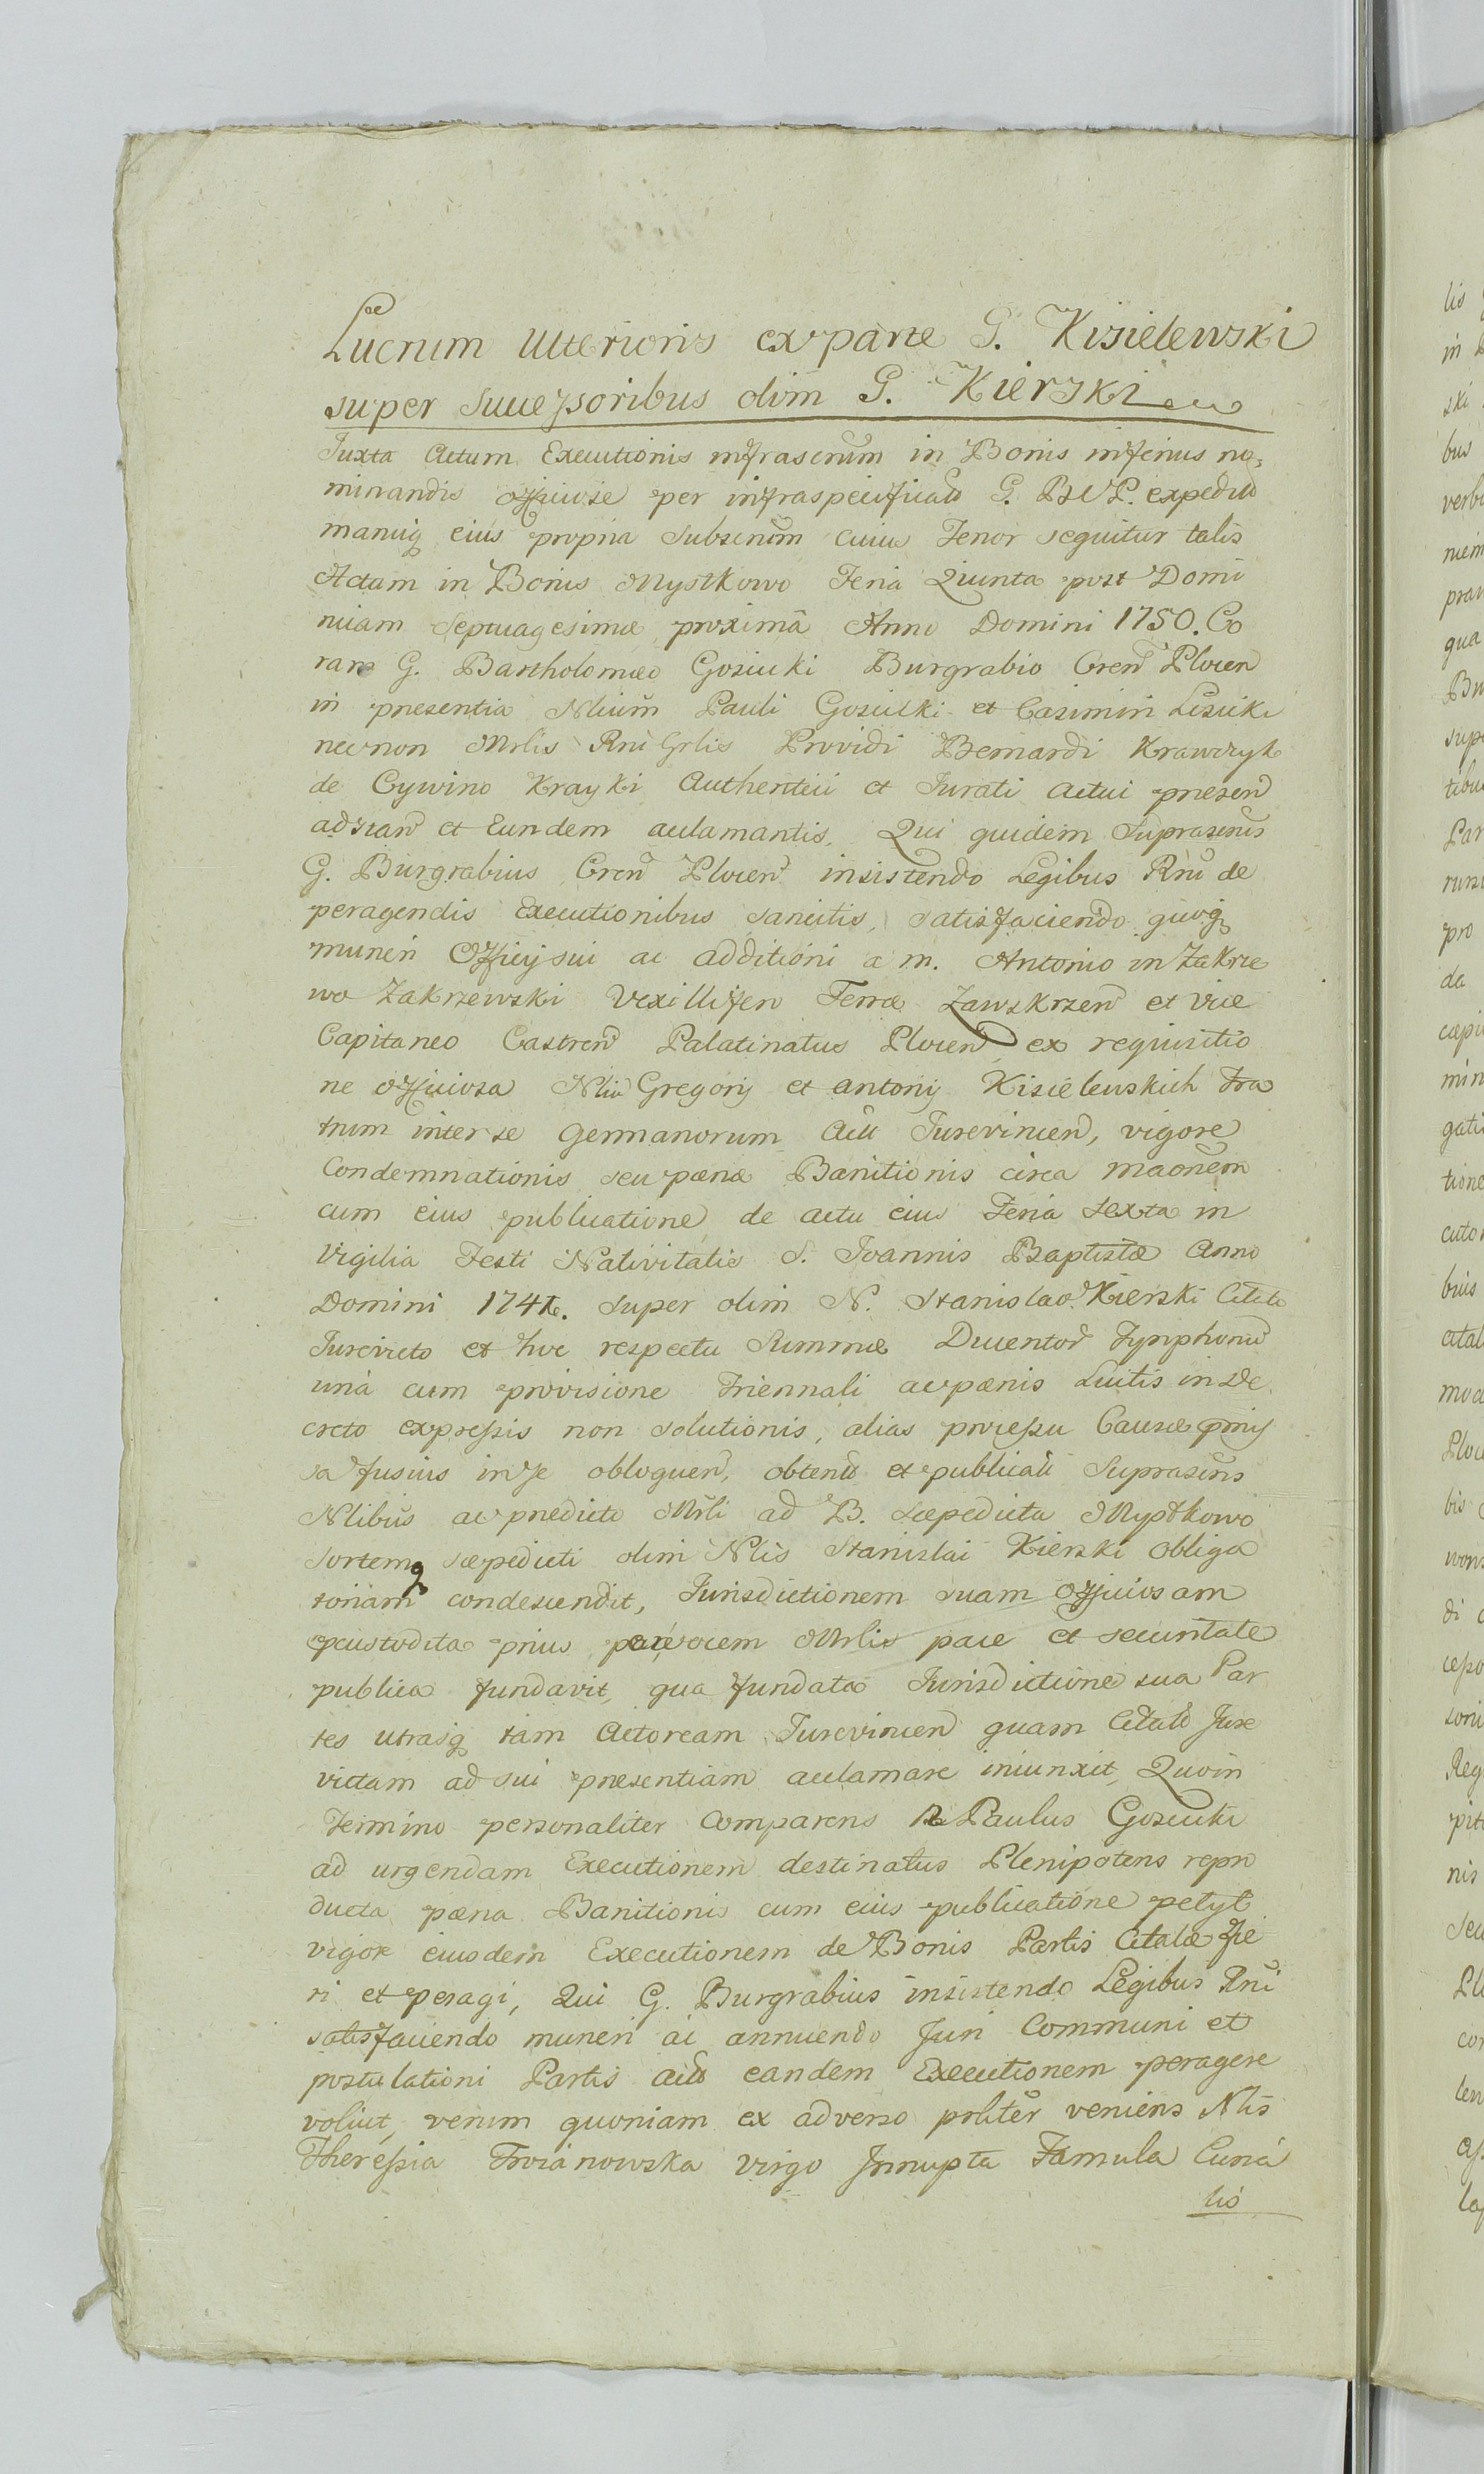 Lucrum Ulterioris ex parte G. Kisielewski
super Successoribus olim G. Kierski
Juxta Actum Executionis infrascrũm in Bonis inferius no,
minandis officiose per infraspecificatũ G. BCP. expeditũ
manuiq eius propria Subscrũm cuius Tenor sequitur talis
Actam in Bonis Mystkowo Feria Quinta post Domi
nicam Septuagesimæ proximâ Anno Domini 1750. Co
ram G. Bartholomæo Gosicki Burgrabio Cren Plocen
in presentia Nlium Pauli Gosicki et Casimiri Lisicki
necnon Mrlis Rni Grlis Providi Bernardi Krawczyk
de Cywino Krayki Authentici et Jurati actui presen
adstan et Eundem acclamantis, Qui quidem Suprascrus
G. Burgrabius Cren Plocen insistendo Legibus Rni de
peragendis Executionibus sancitis, satisfaciendo quoq
muneri Officij sui ac additioni a m. Antonio in Zakrze
wo Zakrzewski Vexillifero Terræ Zawskrzen et Vice
Capitaneo Castren Palatinatus Plocen ex requisitio
ne officiosa Nliũ Gregorij et Antonij Kisielewskich Fra
trum inter se Germanorum Actt Jurevincen, vigore
Condemnationis seu pænæ Banitionis circa maonem
cum eius publicatione de actu eius Feria Sexta in
Vigilia Festi Nativitatis S. Joannis Baptistæ Anno
Domini 174. Super olim N. Stanislao Kierski Citato
Jurevicto et hoc respectu Summæ Ducentor Tynphonũ
unà cum provisione Triennali ac pænis Luitis in De
creto expressis non solutionis, alias processu Causæ pmis
sa fusius in se obloquen, obtentũ et publicatũ Suprascris
Nlibus ac predicto Mrli ad B. sæpedicta Mystkowo
Sortemq sæpedicti olim Nlis Stanislai Kierski obliga
toriam condescendit, Jurisdictionem suam Officiosam
custodita prius per vocem Mrlis pace et securitate
publica fundavit, qua fundata Jurisdictione sua Par
tes utrasq tam Actoream Jurevincen quam Citatã Jure
victam ad sui presentiam acclamare iniunxit, Quo in
Termino personaliter Comparens N. Paulus Gosicki
ad urgendam Executionem destinatus Plenipotens repro
ducta pæna Banitionis cum eius publicatione petyt
vigore eiusdem Executionem de Bonis Partis Citatæ fie
ri et peragi, Qui G. Burgrabius insistendo Legibus Rni
satisfaciendo muneri ac annuendo Juri Communi et
postulationi Partis actũ eandem Executionem peragere
voluit, verum quoniam ex adverso prliter veniens Nlis
Theressia Troianowska virgo Innupta Famula Curia
lis